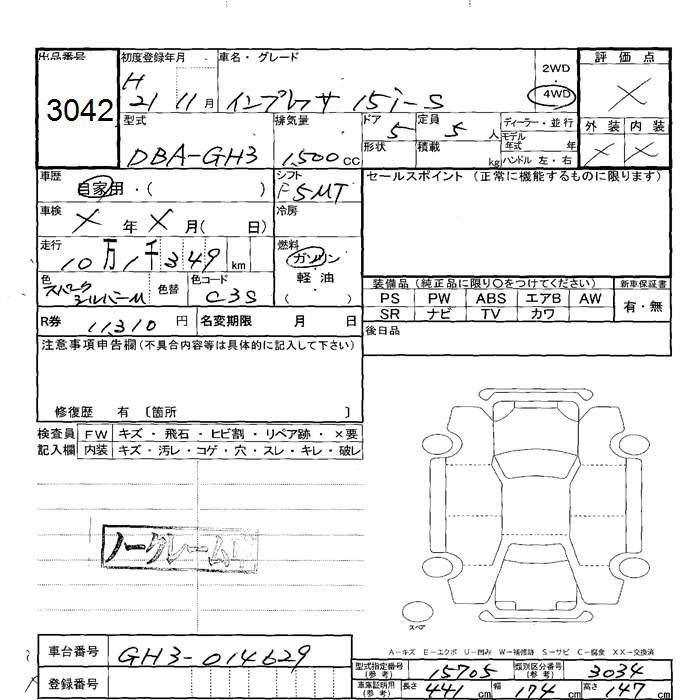 出品番号 初度登録年月 車名・グレード 2WD 評価点
3042 H 21 11月 インプレッサ 15i-S 4WD X
型式 排気量 ドア 定員 ディーラー・並行 外装 内装
DBA-GH3 1,500cc 5 5人 モデル年式 年 X X
形状 積載 kg ハンドル 左・右
車歴 シフト セールスポイント (正常に機能するものに限ります)
自家用・( ) F5MT
車検 冷房
X年X月( 日)
走行 燃料
10万1千349km ガソリン
色 色替 色コード 軽油 装備品 (純正品に限り○をつけてください) 新車保証書
スパークシルバーM C3S ( ) PS PW ABS エアB AW 有・無
SR ナビ TV カワ
R券 11310円 名変期限 月 日 後日品
注意事項申告欄(不具合内容等は具体的に記入して下さい)
修復歴 有 〔箇所 〕
検査員 FW キズ・飛石・ヒビ割・リペア跡・×要
記入欄 内装 キズ・汚レ・コゲ・穴・スレ・キレ・破レ
ノークレーム
スペア
A-キズ E-エクボ U-凹み W-補修跡 S-サビ C-腐食 XX-交換済
車台番号 GH3-014629
型式指定番号(参考) 15705 類別区分番号(参考) 3034
登録番号
車庫証明用(参考) 長さ 441cm 幅 174cm 高さ 147cm